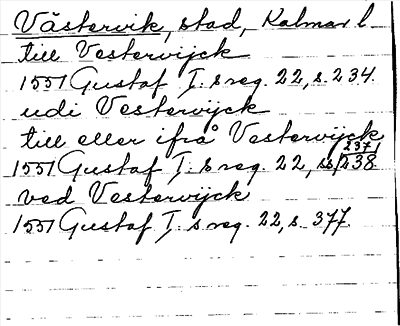 Västervik, stad, Kalmar l.
till Vesterwijck
1551 Gustaf I:s reg. 22, s. 234.
udi Vesterwijck
till eller ifrå Vesterwijck
1551 Gustaf I:s reg. 22, ss. 237, 238
ved Vesterwijck
1551 Gustaf I:s reg. 22, s. 377.